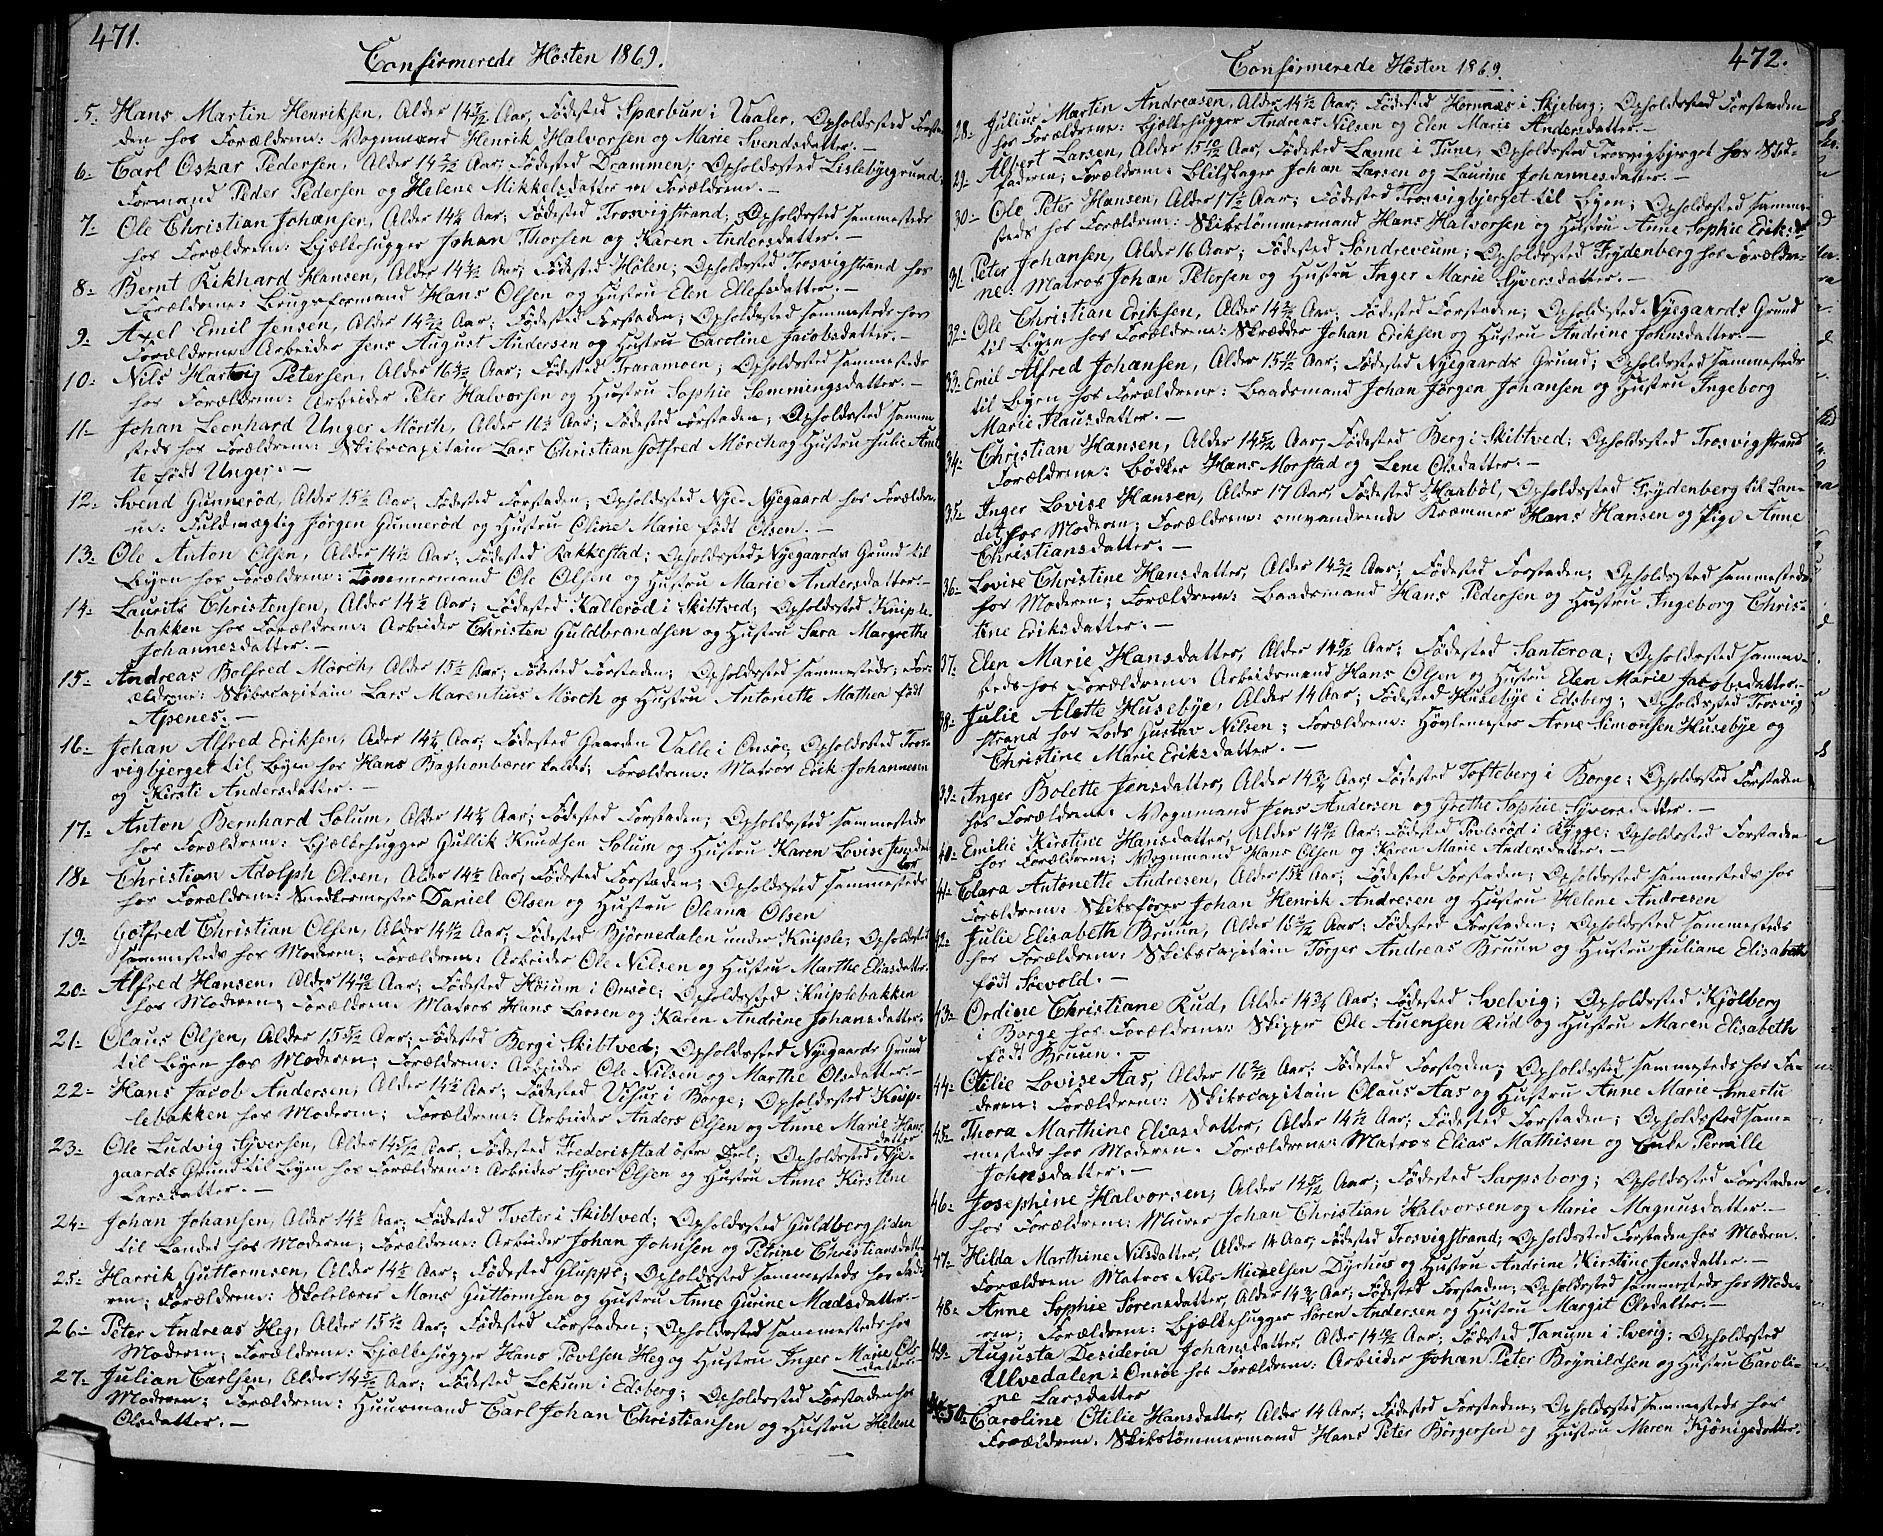 471.
Confirmerede Høsten 1869.
5- Hans Martin Henriksen, Alder 14 7/12 Aar, Fødested Spærbun i Vaaler, Opholdssted Forsta-
den hos Forældrene: Vognmand Henrik Halvorsen og Marie Svendsdatter. —
6- Carl Oskar Pedersen, Alder Aar; Fødested Drammen; Opholdssted Lislebyegrund;
Formand Peder Pedersen og Helene Mikkelsdatter Forældrene. —
7- Ole Christian Johansen, Alder Aar; Fødested Trosvigstrand; Opholdssted sammesteds
hos Forældrene: Bjælkehugger Johan Thorsen og Karen Andersdatter. —
8- Bernt Rikhard Hansen, Alder Aar; Fødested Hølen; Opholdssted Trosvigstrand hos
Forældrene: Hans Olsen og Hustru Elen Ellefsdatter. —
9- Axel Emil Jensen, Alder Aar; Fødested Forstaden; Opholdssted sammesteds hos
Forældrene: Arbeider Jens August Andersen og Hustru Caroline Jacobsdatter. —
10- Nils Hartvig Petersen, Alder Aar; Fødested Traramoen; Opholdssted sammesteds
hos Forældrene: Arbeider Peter Halvorsen og Hustru Sophie Semmingsdatter. —
11- Johan Leonhard Unger Mörch, Alder Aar; Fødested Forstaden; Opholdssted samme
steds hos Forældrene: Skibscapitain Lars Christian Gotfred Mörch og Hustru Julie Anet
te født Unger. —
12- Svend Gunnerød, Alder 15 1/2 Aar; Fødested Forstaden; Opholdssted Nye-Nyegaard hos Forældre
ne: Fuldmægtig Jørgen Gunnerød og Hustru Oline Marie født Olsen. —
13- Ole Anton Olsen, Alder 14 1/2 Aar; Fødested Rakkestad; Opholdssted Nyegaards Grund til
Byen hos Forældrene: Tømmermand Ole Olsen og Hustru Marie Andersdatter. —
14- Laurits Christensen, Alder 14 1/2 Aar; Fødested Kallerød i Skibtved; Opholdssted Kniple-
bakken hos Forældrene: Arbeider Christen Guldbrandsen og Hustru Sara Margrethe
Johannesdatter. —
15- Andreas Bolfred Mörch, Alder 15 1/2 Aar; Fødested Forstaden; Opholdssted sammesteds; For-
ældrene: Skibscapitain Lars Marentius Mörch og Hustru Antonette Mathea født
Apenes. —
16- Johan Alfred Eriksen, Alder Aar; Fødested Gaarden Valle i Onsøe; Opholdssted Tros-
vigbjerget til Byen hos Hans ; Forældrene: Matros Erik Johannesen
og Kirsti Andersdatter. —
17- Anton Bernhard Solum, Alder Aar; Fødested Forstaden; Opholdssted sammesteds
hos Forældrene: Bjælkehugger Gullik Knudsen Solum og Hustru Karen Lovise Jensdat
ter
18- Christian Adolph Olsen, Alder 14 1/2 Aar; Fødested Forstaden; Opholdssted sammesteds
hos Forældrene: Snedkermester Daniel Olsen og Hustru Oleana Olsen
19- Gotfred Christian Olsen, Alder Aar; Fødested Bjørnedalen under Kniple; Opholdssted
sammesteds hos Moderen; Forældrene: Arbeider Ole Nilsen og Hustru Marthe Eliasdatter.
20- Alfred Hansen, Alder 14 10/12 Aar; Fødested Hørum i Onsøe; Opholdssted Kniplebakken
hos Moderen; Forældrene Matros Hans Larsen og Karen Andrine Johansdatter.
21- Claus Olsen, Alder 15 5/12 Aar; Fødested Berg i Skibtved; Opholdssted Nyegaards Grund
til Byen hos Moderen; Forældrene: Arbeider Ole Nilsen og Marthe Olsdatter. —
22- Hans Jacob Andersen, Alder Aar; Fødested Visur i Borge; Opholdssted Knip-
lebakken hos Moderen; Forældrene: Arbeider Anders Olsen og Anne Marie Hans
datter
23- Ole Ludvig Syversen, Alder 14 5/12 Aar; Fødested Frederiksstad østre Deel; Opholdssted Nye-
gaards Grund til Byen hos Forældrene: Arbeider Syver Olsen og Hustru Anne Kirstine
Larsdatter. —
24- Johan Johansen, Alder 14 1/2 Aar; Fødested Tveter i Skibtved; Opholdssted Guldbergsiden
til Landet hos Moderen; Forældrene: Arbeider Johan Johnsen og Petrine Christiansdatter
25- Harrik Guttormsen, Alder 14 1/2 Aar; Fødested Gluppe; Opholdssted sammesteds hos Fade
ren; Forældrene: Skolelærer Mons Guttormsen og Hustru Anne Gurine Mædsdatter. —
26- Peter Andreas Heg, Alder Aar; Fødested Forstaden; Opholdssted sammesteds hos
Moderen; Forældrene: Bjælkehugger Hans Povlsen Heg og Hustru Inger Marie Ols
datter.
27- Julian Carlsen, Alder Aar; Fødested Løksum i Edsberg; Opholdssted Forstaden hos
Moderen; Forældrene: Huusmand Carl Johan Christiansen og Hustru Helene
Olsdatter. —
472.
Confirmerede Høsten 1869.
28- Julius Martin Andreasen, Alder 14 1/2 Aar; Fødested Hornnæs i Skjeberg; Opholdssted Forstaden
hos Forældrene: Bjælkehugger Andreas Nilsen og Elen Marie Andersdatter. —
29- Albert Larsen, Alder 15 10/12 Aar, Fødested Lanne i Tune, Opholdssted Trosvigbjerget hos Sted-
faderen; Forældrene: Johan Larsen og Laurine Johannesdatter. —
30- Ole Peter Hansen, Alder 17 1/2 Aar; Fødested Trosvigbjerget til Byen; Opholdssted samme-
steds hos Forældrene: Skibstömmermand Hans Halvorsen og Hustru Anne Sophie Eriksdt
31- Peter Johansen, Alder 16 Aar; Fødested Søndreveum; Opholdssted Frydenberg hos Forældre-
ne: Matros Johan Petersen og Hustru Inger Marie Syversdatter. —
32- Ole Christian Eriksen, Alder Aar; Fødested Forstaden; Opholdssted Nyegaards Grund
til Byen hos Forældrene: Skrædder Johan Eriksen og Hustru Andrine Johnsdatter. —
33- Emil Alfred Johansen, Alder 15 11/12 Aar; Fødested Nyegaards Grund; Opholdssted sammesteds
til Byen hos Forældrene: Baadsmand Johan Jørgen Johansen og Hustru Ingeborg
Marie Klausdatter. —
34- Christian Hansen, Alder 14 5/12 Aar; Fødested Berg i Skibtved; Opholdssted Trosvigstrand
Forældrene: Bødker Hans Morstad og Lene Olsdatter. —
35- Inger Lovise Hansen, Alder 17 Aar, Fødested Haabøl, Opholdssted Frydenberg til Lan-
det hos Moderen; Forældrene: omvandrende Kræmmer Hans Hansen og Pige Anne
Christiansdatter. —
36- Lovise Christine Hansdatter, Alder Aar; Fødested Forstaden; Opholdssted sammesteds
hos Moderen; Forældrene: Baadsmand Hans Pedersen og Hustru Ingeborg Chris-
tine Eriksdatter. —
37- Elen Marie Hansdatter, Alder Aar; Fødested Santoroa; Opholdssted samme-
steds hos Forældrene: Arbeidsmand Hans Olsen og Hustru Elen Marie Jacobsdatter. —
38- Julie Alette Husebye, Alder 14 Aar; Fødested Husebye i Edsberg; Opholdssted Trosvig
strand hos Lods Gustav Nilsen; Forældrene: Høvlemester Arne Simonsen Husebye og
Christine Marie Eriksdatter. —
39- Anger Bolette Jensdatter, Alder 14 3/4 Aar; Fødested Tofteberg i Borge; Opholdssted Forstaden
hos Forældrene: Vognmand Jens Andersen og Grethe Sophie Syversdatter. —
40- Emilie Kirstine Hansdatter, Alder 14 10/12 Aar; Fødested Povlsrød i Rygge; Opholdssted Forstaden
hos Forældrene; Vognmand Hans Olsen og Karen Marie Andersdatter. —
41- Clara Antonette Andresen, Alder Aar; Fødested Forstaden; Opholdssted sammesteds hos
Forældrene: Skibsfører Johan Henrik Andresen og Hustru Helene Andresen
42- Julie Elisabeth Bruun, Alder Aar; Fødested Forstaden; Opholdssted sammesteds
hos Forældrene: Skibscapitain Törger Andreas Bruun og Hustru Juliane Elisabeth
født Soevold. —
43- Ordine Christiane Rud, Alder 14 3/4 Aar; Fødested Svelvig; Opholdssted Kjölberg
i Borge hos Forældrene: Skipper Ole Auensen Rud og Hustru Maren Elisabeth
født Bruun. —
44- Otilie Lovise Aas, Alder 16 2/12 Aar; Fødested Forstaden; Opholdssted sammesteds hos Fa-
deren: Forældrene: Skibscapitain Claus Aas og Hustru Anne Marie Smertu
45- Thora Marthine Eliasdatter, Alder 14 1/2 Aar; Fødested Forstaden; Opholdssted sam-
mesteds hos Moderen. Forældrene: Matros Elias Mathisen og Enke Pernille
Johnsdatter. —
46- Josephine Halvorsen; Alder Aar; Fødested Sarpsborg; Opholdssted Forstaden
hos Forældrene: Murer Johan Christian Halvorsen og Marie Magnusdatter. —
47- Hilda Marthine Nilsdatter, Alder 14 Aar, Fødested Trosvigstrand; Opholdssted Forstaden hos Moderen.
Forældrene Matros Nils Mikelsen Dyrhus og Hustru Andrine Kirstine Jensdatter. —
48- Anne Sophie Sörensdatter, Alder 14 3/4 Aar; Fødested Forstaden; Opholdssted sammesteds hos Mode-
ren; Forældrene: Bjælkehugger Sören Andersen og Hustru Margit Olsdatter. —
49- Augusta Desideria Johansdatter, Alder 14 10/12 Aar; Fødested Tanum i Sverig; Opholdssted
Ulvedalen i Onsøe hos Forældrene: Arbeider Johan Peter Brynildsen og Hustru Caroli-
ne Larsdatter
50- Caroline Otilie Hansdatter, Alder 14 Aar; Fødested Forstaden; Opholdssted sammesteds hos
Forældrene. Skibstömmermand Hans Peter Börgersen og Hustru Maren Kjönigsdatter.